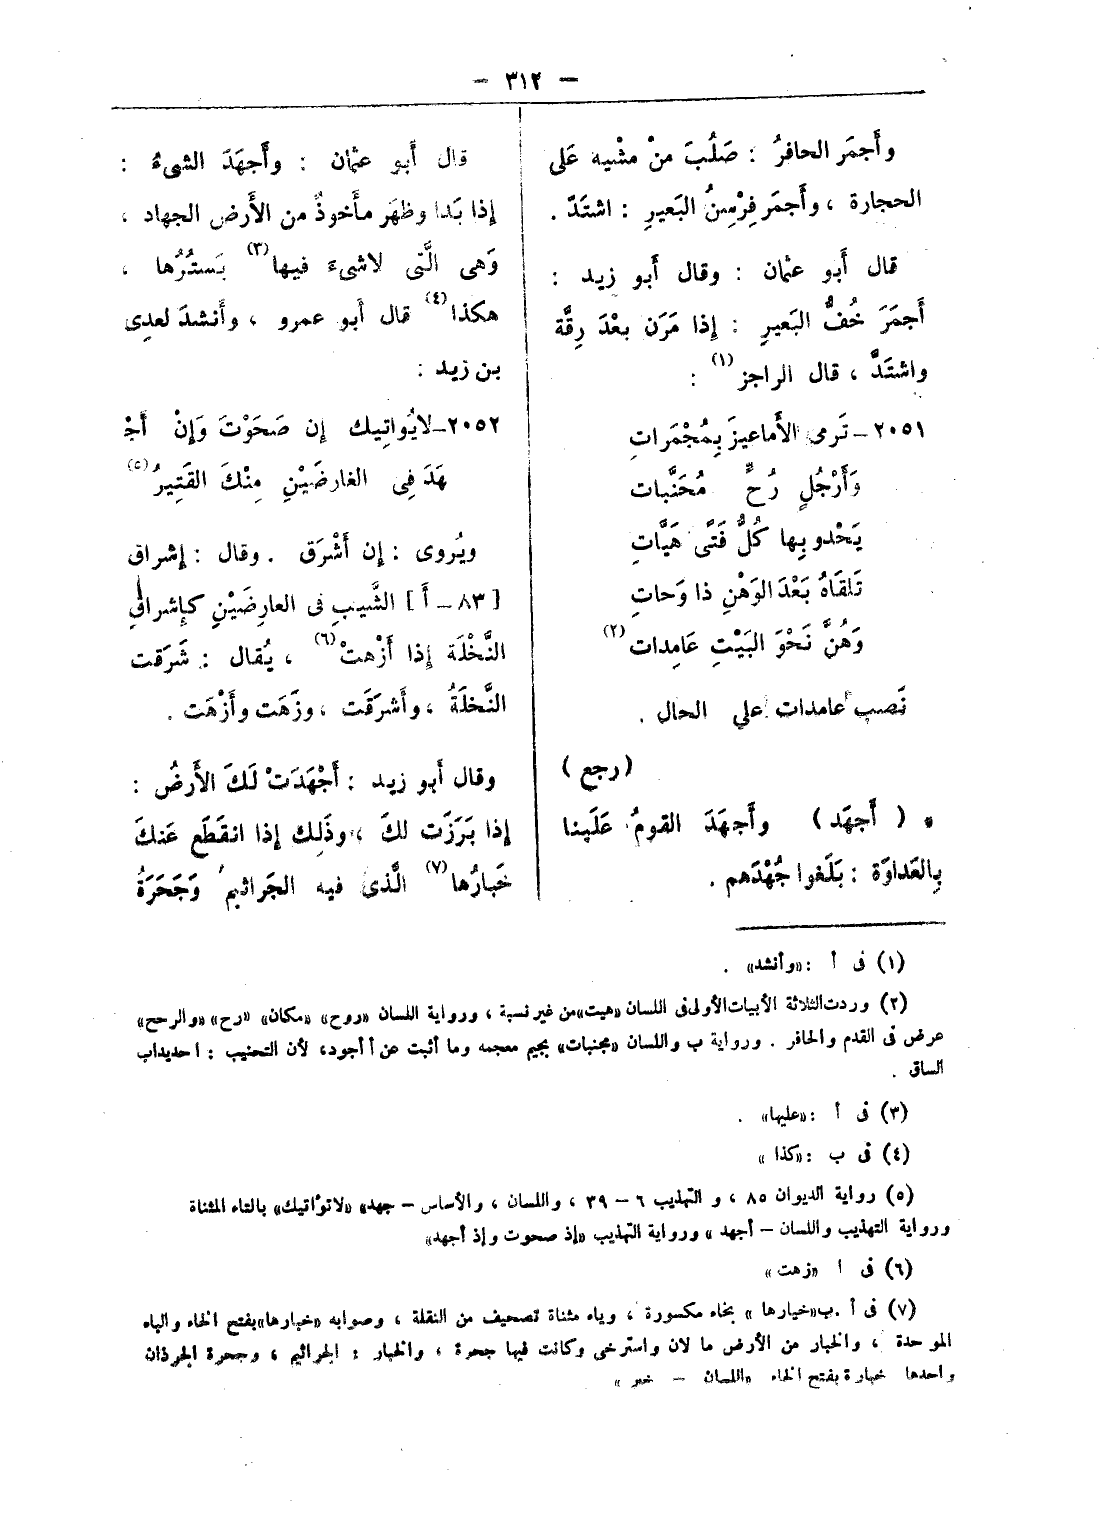 — ٣١٢ —
وأَجمَر الحافرُ : صَلُبَ منْ مشْيه عَلى
الحجارة ، وأَجمَر فِرْسِنُ البَعيرِ : اشتَدَّ .
قال أَبو عثمان : وقال أَبو زيد :
أَجمَرَ خُفُّ البَعيرِ : إِذا مَرَن بعْدَ رِقَّة
واشتَدَّ ، قال الراجز (١) :
٢٠٥١ – تَرمى الأَماعيزَ بِمُجْمَراتِ
وَأَرْجُلٍ رُحٍّ مُحَنَّبات
يَحْدو بِها كُلُّ فَتًى هَيَّاتِ
تَلقَاهُ بَعْدَ الوَهْنِ ذا وَحاتِ
وَهُنَّ نَحْوَ البَيْتِ عَامِدات (٢)
نَصب عامدات على الحال .
(رجع)
• ( أَجهَد ) وأَجهَدَ القومُ عَلَينا
بِالعَداوَة : بَلَغوا جُهْدَهم .
قال أَبو عثمان : وأَجهَدَ الشىءُ :
إِذا بَدا وظهَر مأْخوذٌ من الأَرض الجهاد ،
وَهى الَّتى لاشىءَ فيها (٣) يَستُرُها ،
هكذا (٤) قال أَبو عمرو ، وأَنشدَ لعدِى
بن زيد :
٢٠٥٢–لايُواتِيك إِن صَحَوْتَ وَإِنْ أَجْـ
هَدَ فِى العَارضَيْنِ مِنْكَ القَتِيرُ (٥)
ويُروى : إِن أَشْرَق . وقال : إِشراق
[ ٨٣ – أَ ] الشَّيبِ فى العارِضَيْنِ كإِشراقِ
النَّخْلَة إِذا أَزْهتْ (٦) ، يُقال : شَرَقت
النَّخلَةُ ، وأَشرَقَت ، وزَهَت وأَزْهَت .
وقال أَبو زيد : أَجْهَدَتْ لَكَ الأَرضُ :
إِذا بَرَزَت لكَ ، وذَلِك إِذا انقَطَع عَنكَ
خَبارُها (٧) الَّذى فيه الجَراثيم وَجَحَرَةُ
(١) فى أ : «وأنشد» .
(٢) وردت الثلاثة الأبيات الأولى فى اللسان «هيت» من غير نسبة ، ورواية اللسان «روح» «مكان» «رح» «والرحح»
عرض فى القدم والحافر . ورواية ب واللسان «مجنبات» بجيم معجمه وما أثبت عن أ أجود، لأن التحنيب : احديداب
الساق .
(٣) فى أ : «عليها» .
(٤) فى ب : «كذا »
(٥) رواية الديوان ٨٥ ، و التهذيب ٦ – ٣٩ ، واللسان ، والأساس – جهد» «لاتؤاتيك» بالتاء المثناة
ورواية التهذيب واللسان – أجهد » ورواية التهذيب «إذ صحوت وإذ أجهد»
(٦) فى أ «زهت »
(٧) فى أ .ب«خيارها » بخاء مكسورة ، وياء مثناة تصحيف من النقلة ، وصوابه «خبارها»بفتح الخاء والباء
الموحدة ، والخبار من الأرض ما لان واسترخى وكانت فيها جحرة ، والخبار : الجراثيم ، وجحرة الجرذان
واحدها خبارة بفتح الخاء «اللسان – خبر »